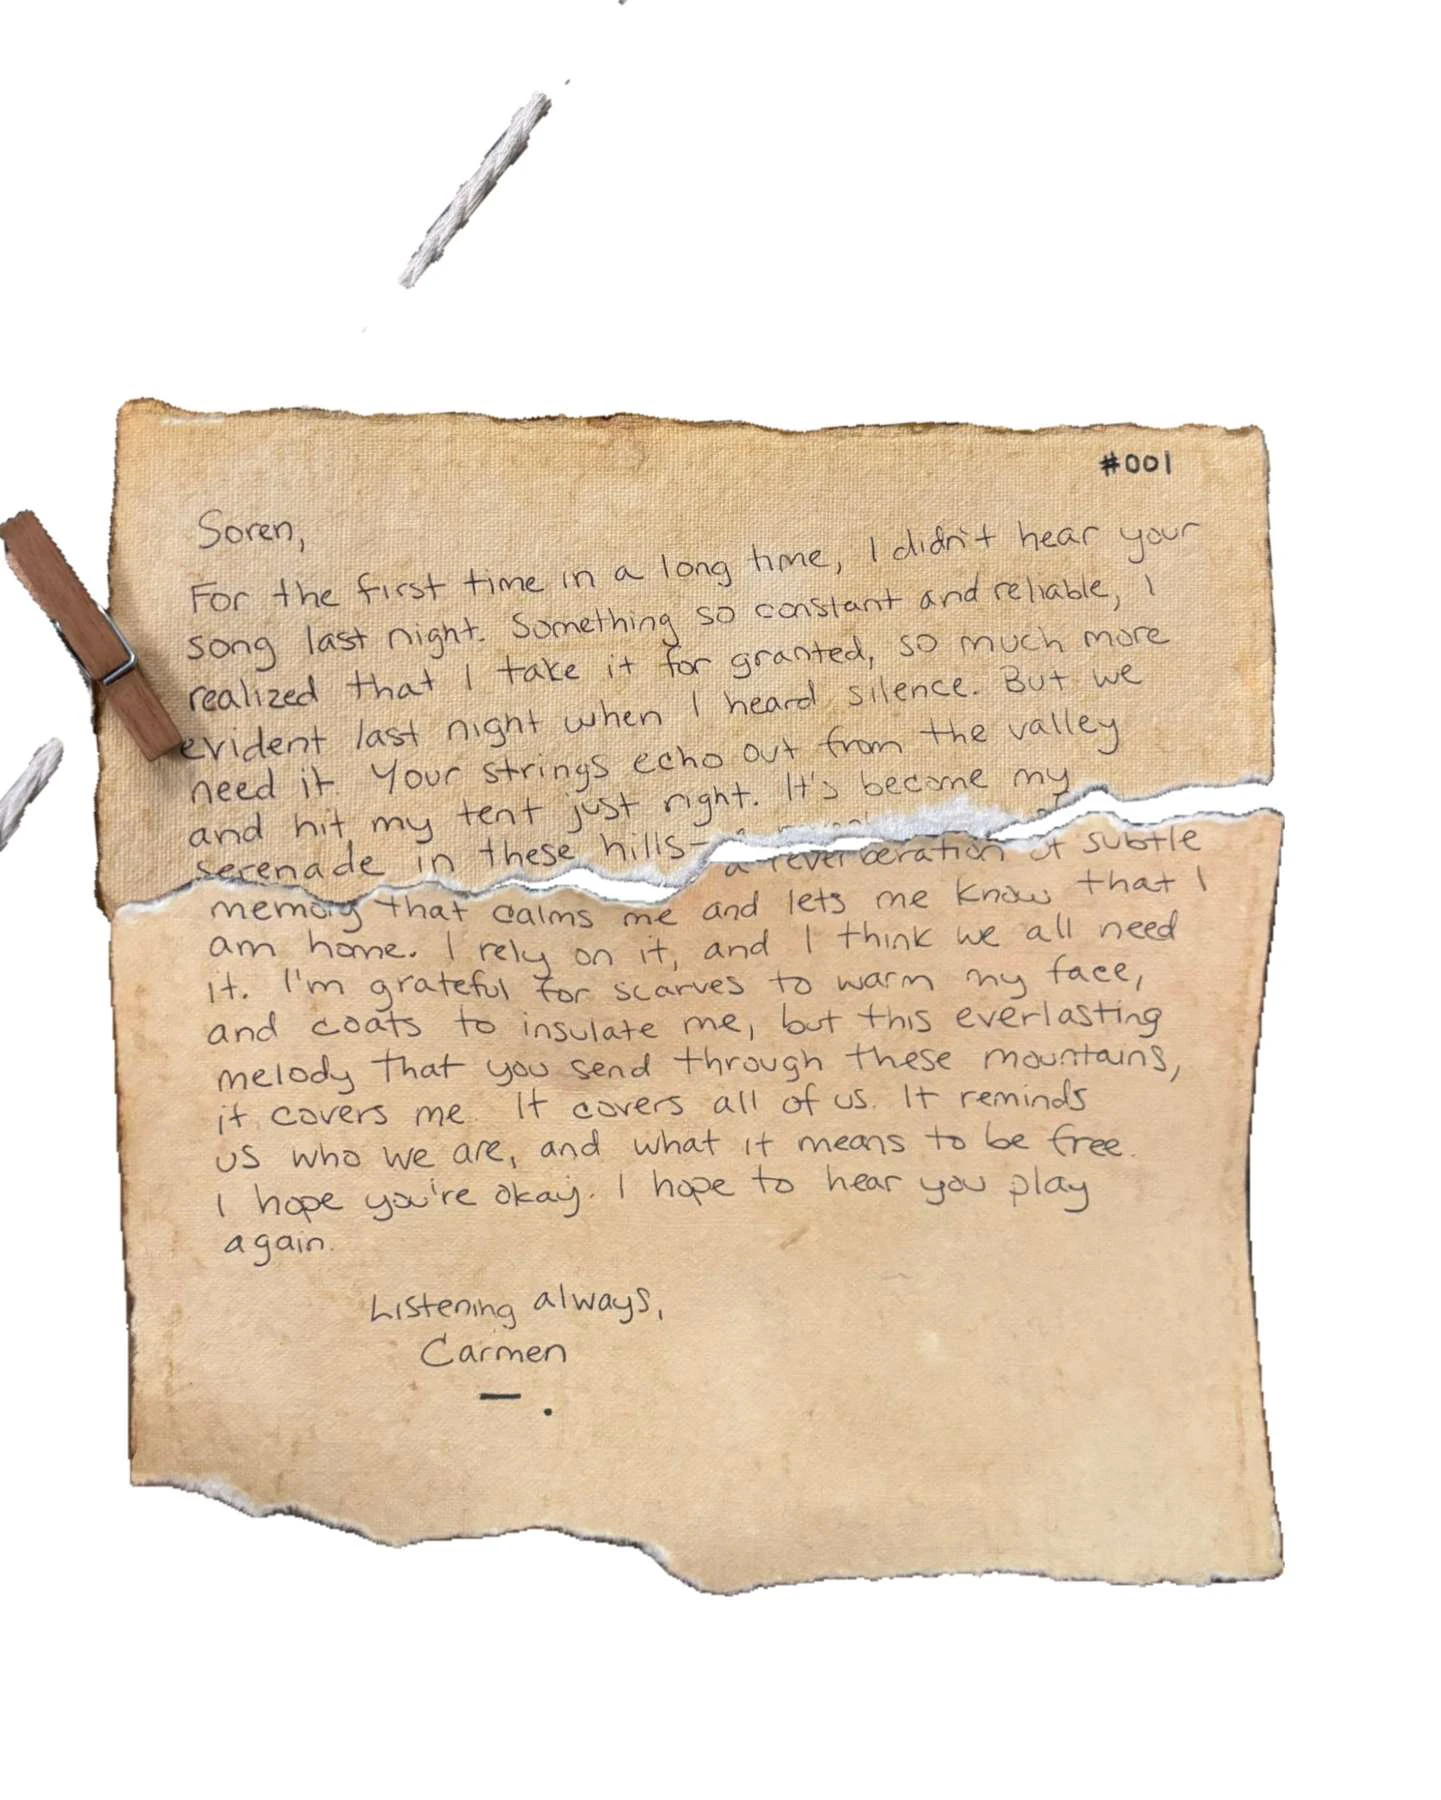 #001
Soren,
For the first time in a long time, I didn't hear your
song last night. Something so constant and reliable, I
realized that I take it for granted, so much more
evident last night when I heard silence. But we
need it. Your strings echo out from the valley
and hit my tent just right. It's become my
serenade in these hills- a reverberation of subtle
memory that calms me and lets me know that I
am home. I rely on it, and I think we all need
it. I'm grateful for scarves to warm my face,
and coats to insulate me, but this everlasting
melody that you send through these mountains,
it covers me. It covers all of us. It reminds
us who we are, and what it means to be free.
I hope you're okay. I hope to hear you play
again.
Listening always,
Carmen